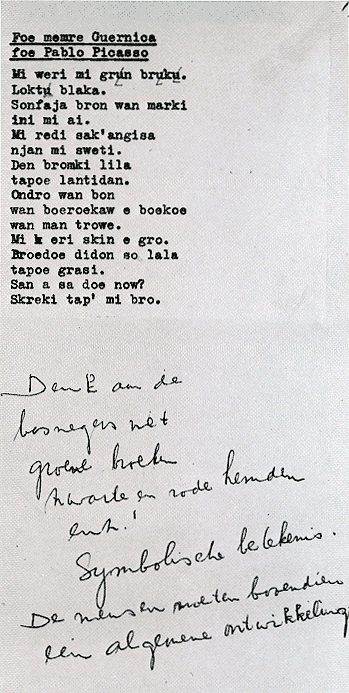 Foe memre Guernica
foe Pablo Picasso
Mi weri mi grun bruku.
Loktu blaka.
Sonfaja bron wan marki
ini mi ai.
Mi redi sak'angisa
njan mi sweti.
Den bromki lila
tapoe lantidan.
Ondro wan bon
wan boeroekaw e boekoe
wan man trowe.
Mi eri skin e gro.
Broedoe didon so lala
tapoe grasi.
San a sa doe now?
Skreki tap' mi bro.
Denk aan de
bosnegers met
groene broeken
zwarte en rode hemden
enz.!
Symbolische betekenis.
De mensen moeten bovendien
een algemene ontwikkeling